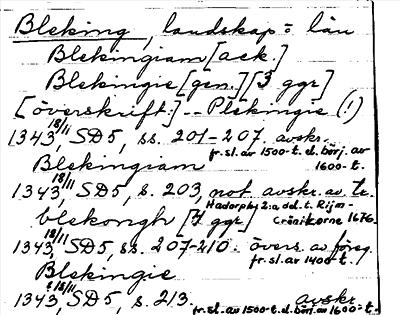 Bleking, landskap o län
Blekingiam [ack.]
Blekingie [gen.] [3 ggr]
[överskrift:] -- Plekingie (!)
1343 18/11, SD5, ss. 201-207. avskr.
fr. sl. av 1500-t. el. börj. av
Blekingiam 1600-t.
1343 18/11, SD5, s. 203, not. avskr. av tr.
Hadorph 2:a del. t. Rijm-
blekongh [4 ggr] Crönikorne 1676.
1343 18/11, SD5, ss. 207-210. övers. av föreg.
fr. sl. av 1400-t.
Blekingie
1343, SD5, s. 213. avskr.
fr. sl. av 1500-t. el. börj. av 1600-t.